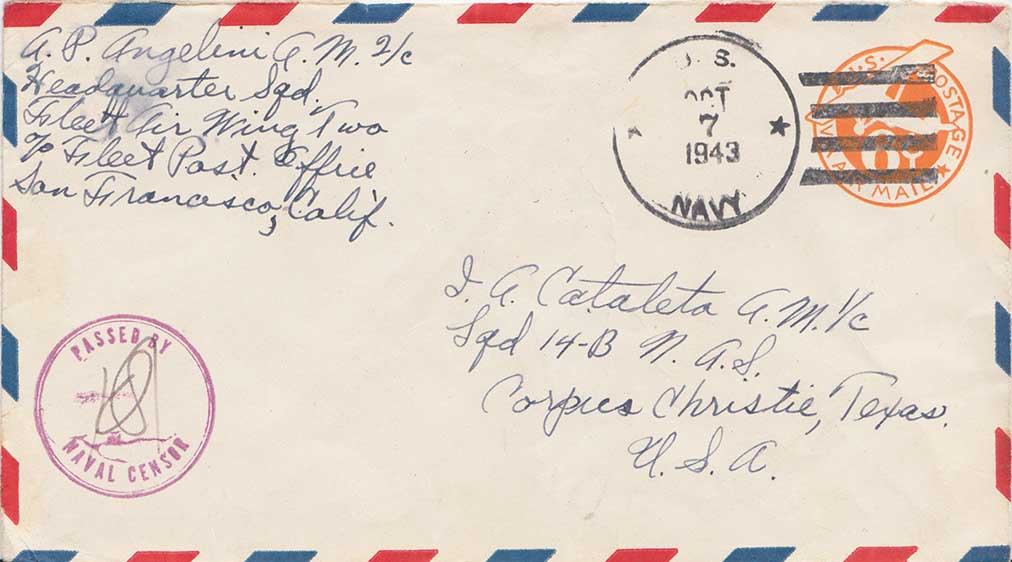 A. P. Angelini A.M. 2/c
Headquarter Sqd.
Fleet Air Wing Two
c/o Fleet Post. Office
San Francisco, Calif.
U.S.
OCT
7
1943
NAVY
U.S. POSTAGE
6¢
VIA AIR MAIL
I. A. Cataleta A.M. 1/c
Sqd 14-B N.A.S.
Corpus Christie, Texas.
U.S.A.
PASSED BY
NAVAL CENSOR